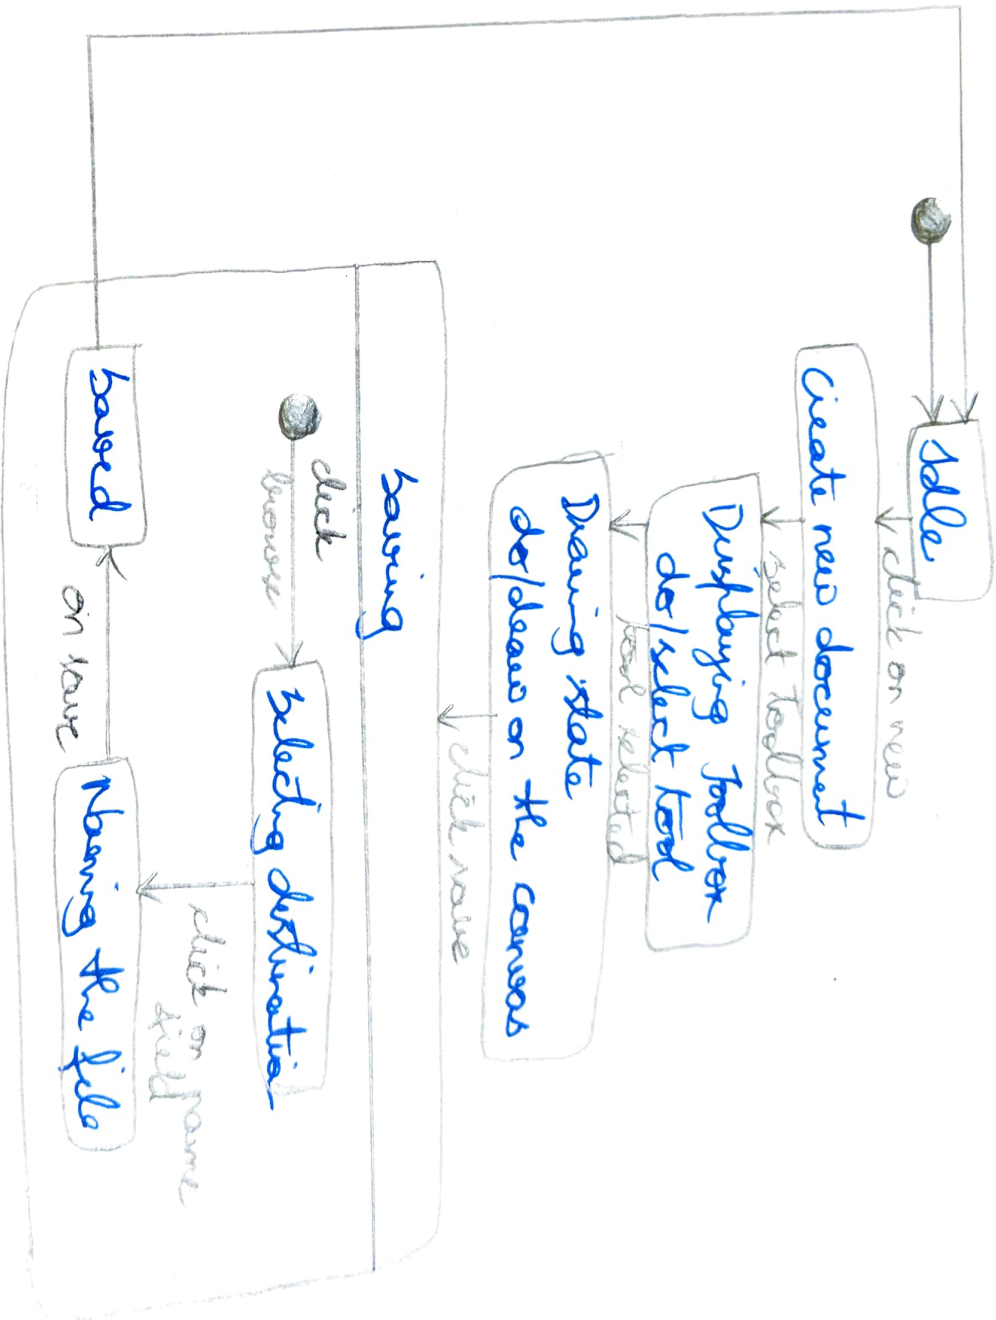 Idle
click on new
Create new document
select toolbox
Displaying Toolbox
do/select tool
tool selected
Drawing state
do/draw on the canvas
click save
Saving
click
browse
Selecting destination
click on name
field
Naming the file
on save
Saved